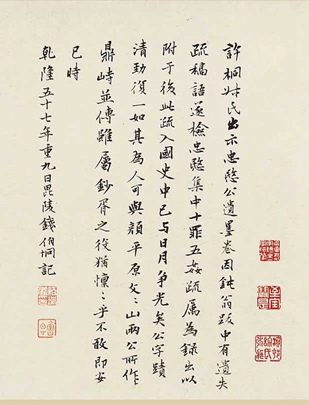 許桐妹氏出示忠愍公遺墨卷因鈍翁跋中有遺失
疏稿語遂檢忠愍集中十罪五姦疏屬為錄出以
附于後此疏入國史中已与日月争光矣公字蹟
清勁復一如其為人可與顏平原文文山兩公所作
鼎峙並傳雖屬鈔胥之役猶懍懍乎不敢即安
已時
乾隆五十七年重九日毘陵錢伯坰記